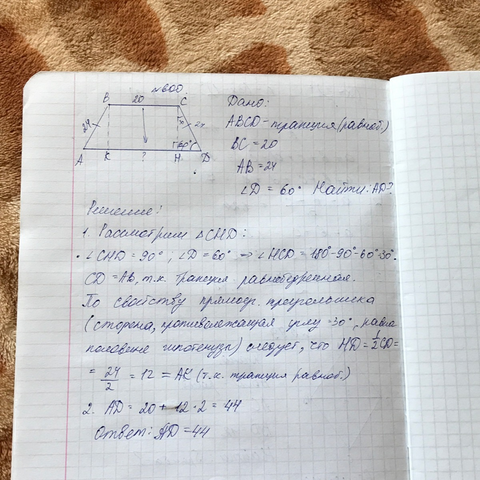 №600
B 20 C
24 24
60°
A K ? H D
Дано:
ABCD - трапеция (равноб.)
BC = 20
AB = 24
∠D = 60° Найти: AD?
Решение:
1. Рассмотрим △CHD:
∠CHD = 90°, ∠D = 60° ⇒ ∠HCD = 180°-90°-60°=30°.
CD = AB, т.к. трапеция равнобедренная.
По свойству прямоуг. треугольника
(сторона, противолежащая углу 30°, равна
половине гипотенузы) следует, что HD = 1/2 CD =
= 24/2 = 12 = AK (т.к. трапеция равноб.)
2. AD = 20 + 12 · 2 = 44
Ответ: AD = 44